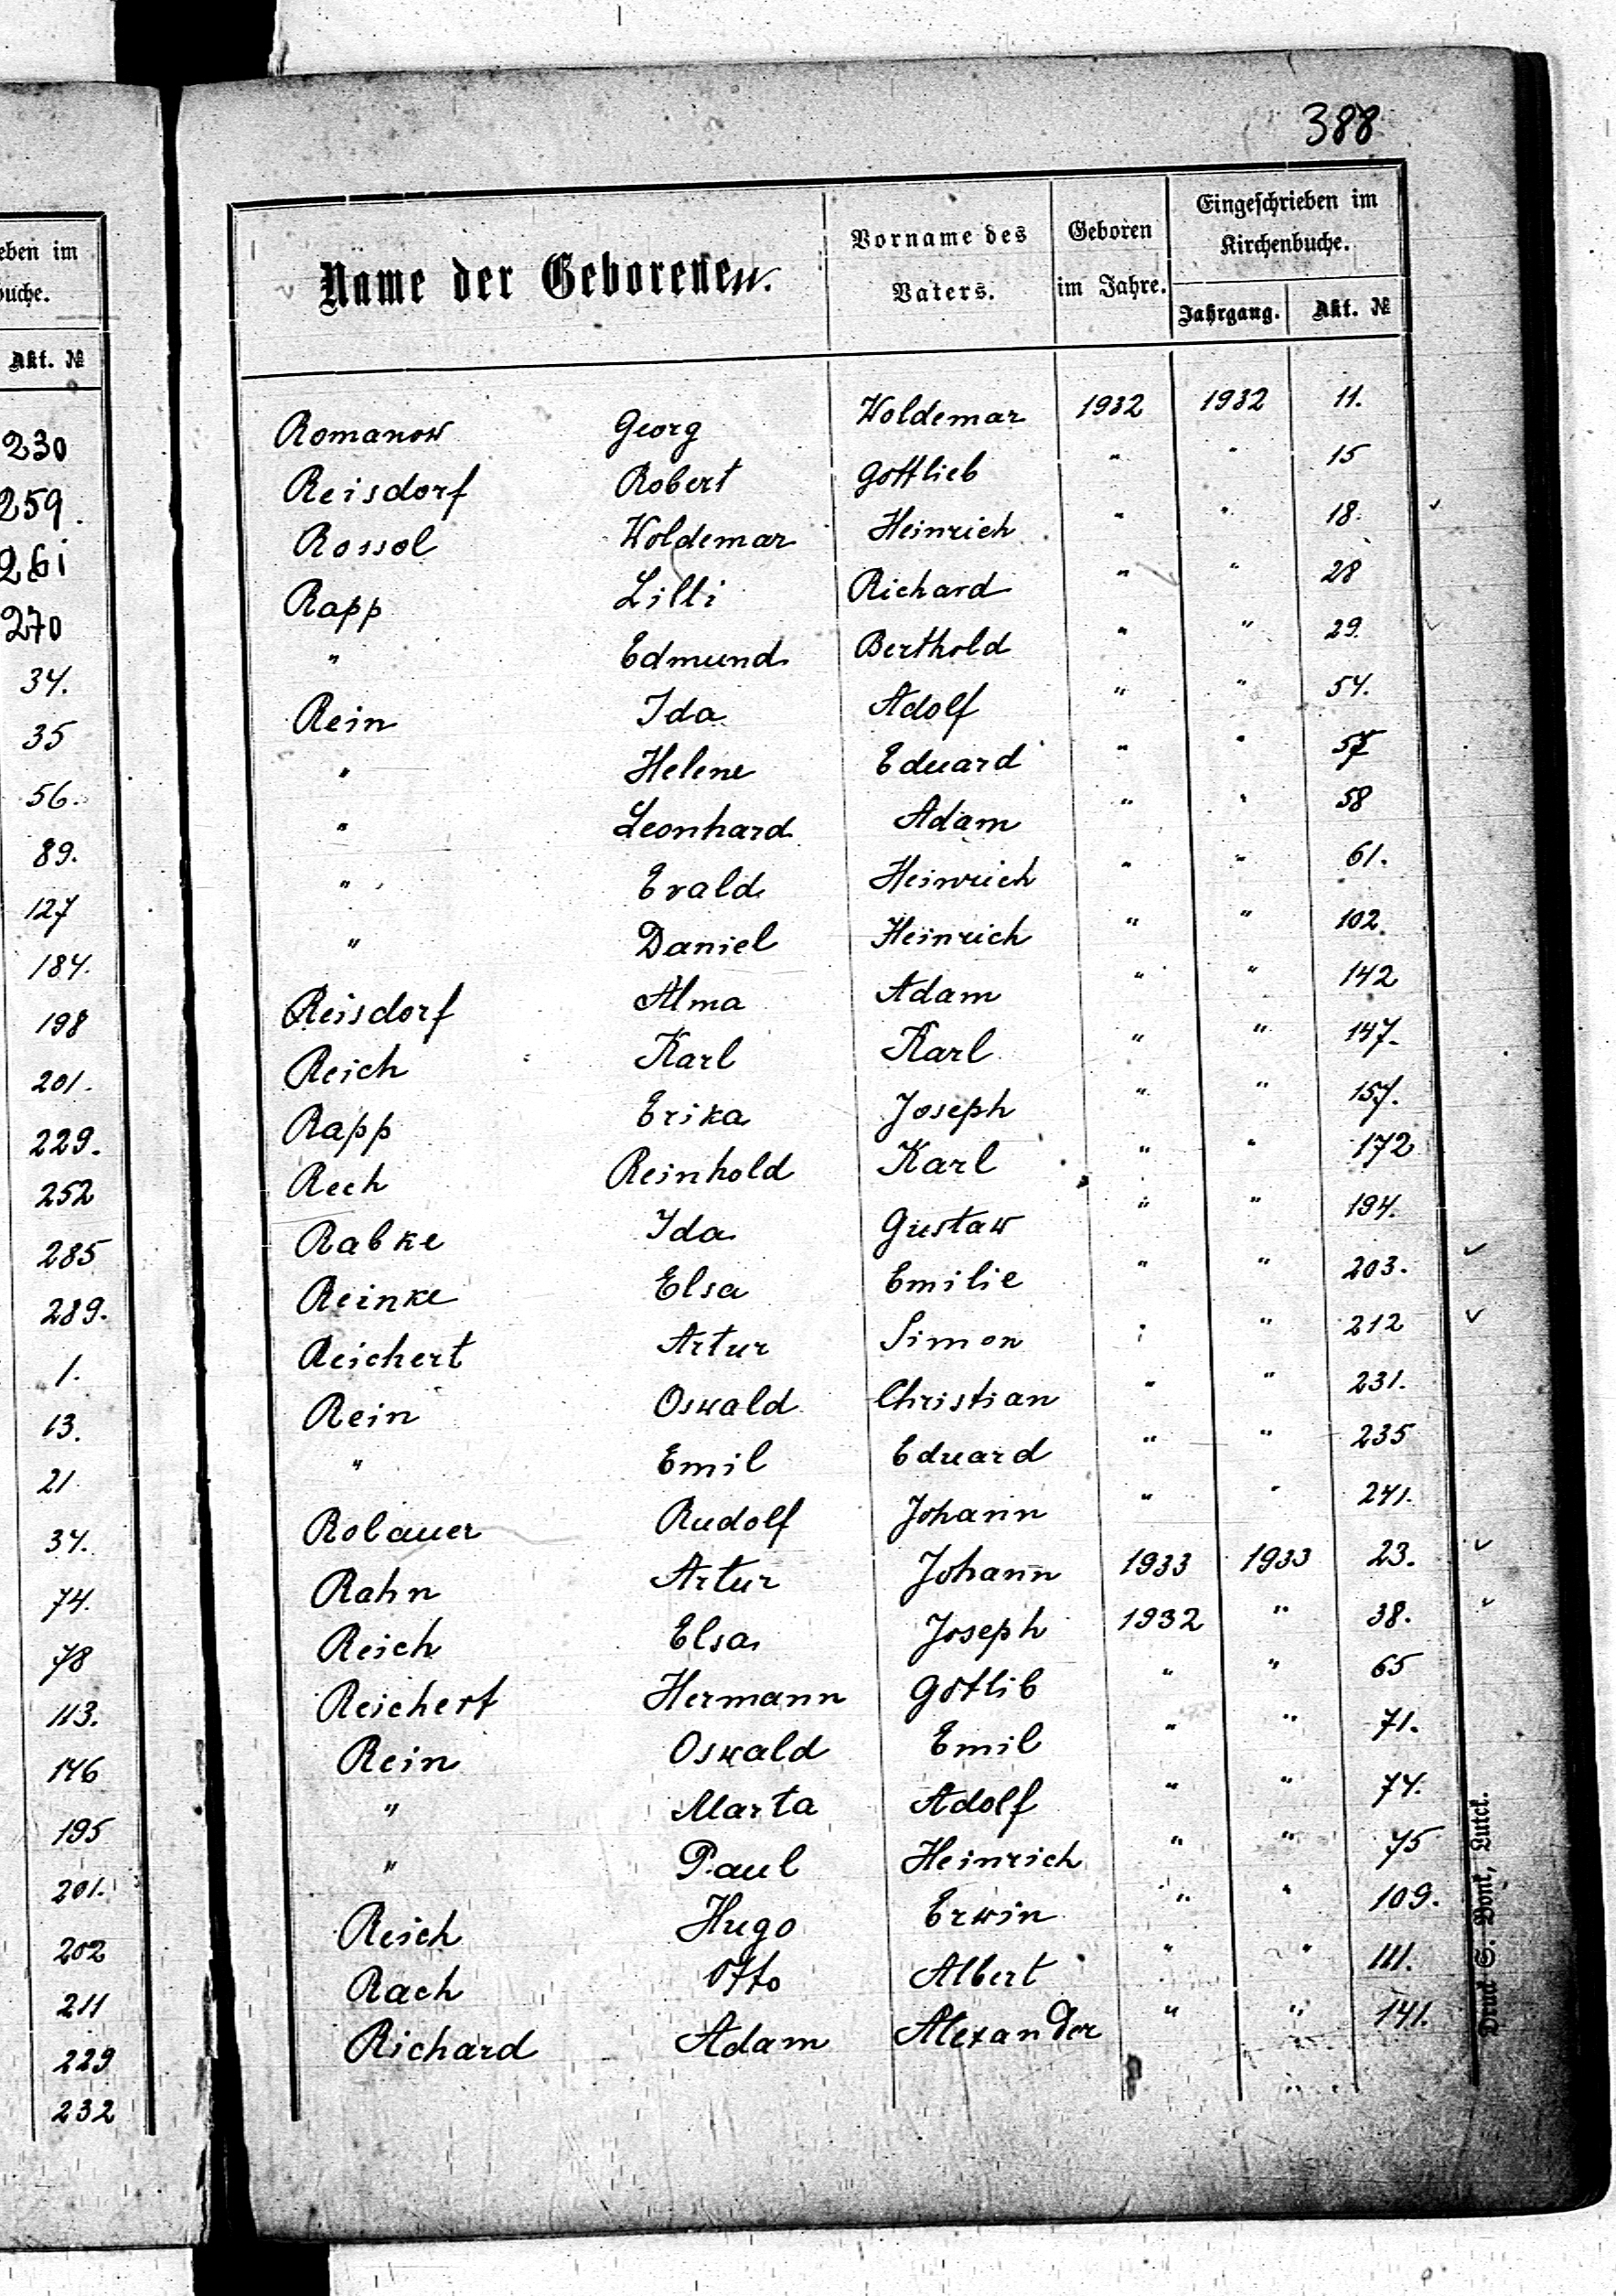 eben im
buche.
Akt. №
230
259.
261
270
34.
35
56.
89.
127
184.
198
201.
229.
252
285
289.
1.
13.
21
34.
74.
78
113.
146
195
201.
202
211
229
232
388
Name der Geborenen.
Vorname des Vaters.
Geboren im Jahre.
Eingeschrieben im Kirchenbuche.
Jahrgang. Akt. №
Romanow Georg Woldemar 1932 1932 11.
Reisdorf Robert Gottlieb " " 15
Rossol Woldemar Heinrich " " 18.
Rapp Lilli Richard " " 28
" Edmund Berthold " " 29.
Rein Ida Adolf " " 54.
" Helene Eduard " " 57
" Leonhard Adam " " 58
" Evald Heinrich " " 61.
" Daniel Heinrich " " 102.
Reisdorf Alma Adam " " 142
Reich Karl Karl " " 147.
Rapp Erika Joseph " " 157.
Rech Reinhold Karl " " 172
Rabke Ida Gustaw " " 194.
Reinke Elsa Emilie " " 203.
Reichert Artur Simon " " 212
Rein Oswald Christian " " 231.
" Emil Eduard " " 235
Rolauer Rudolf Johann " " 241.
Rahn Artur Johann 1933 1933 23.
Reich Elsa Joseph 1932 " 38.
Reichert Hermann Gotlib " " 65
Rein Oswald Emil " " 71.
" Marta Adolf " " 74.
" Paul Heinrich " " 75
Reich Hugo Erwin " " 109.
Rach Otto Albert " " 111.
Richard Adam Alexander " " 141.
Druck S. Bont, Luck.